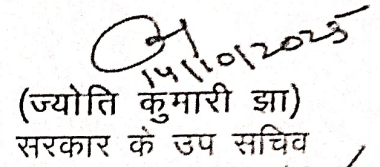 14/10/2025
(ज्योति कुमारी झा)
सरकार के उप सचिव